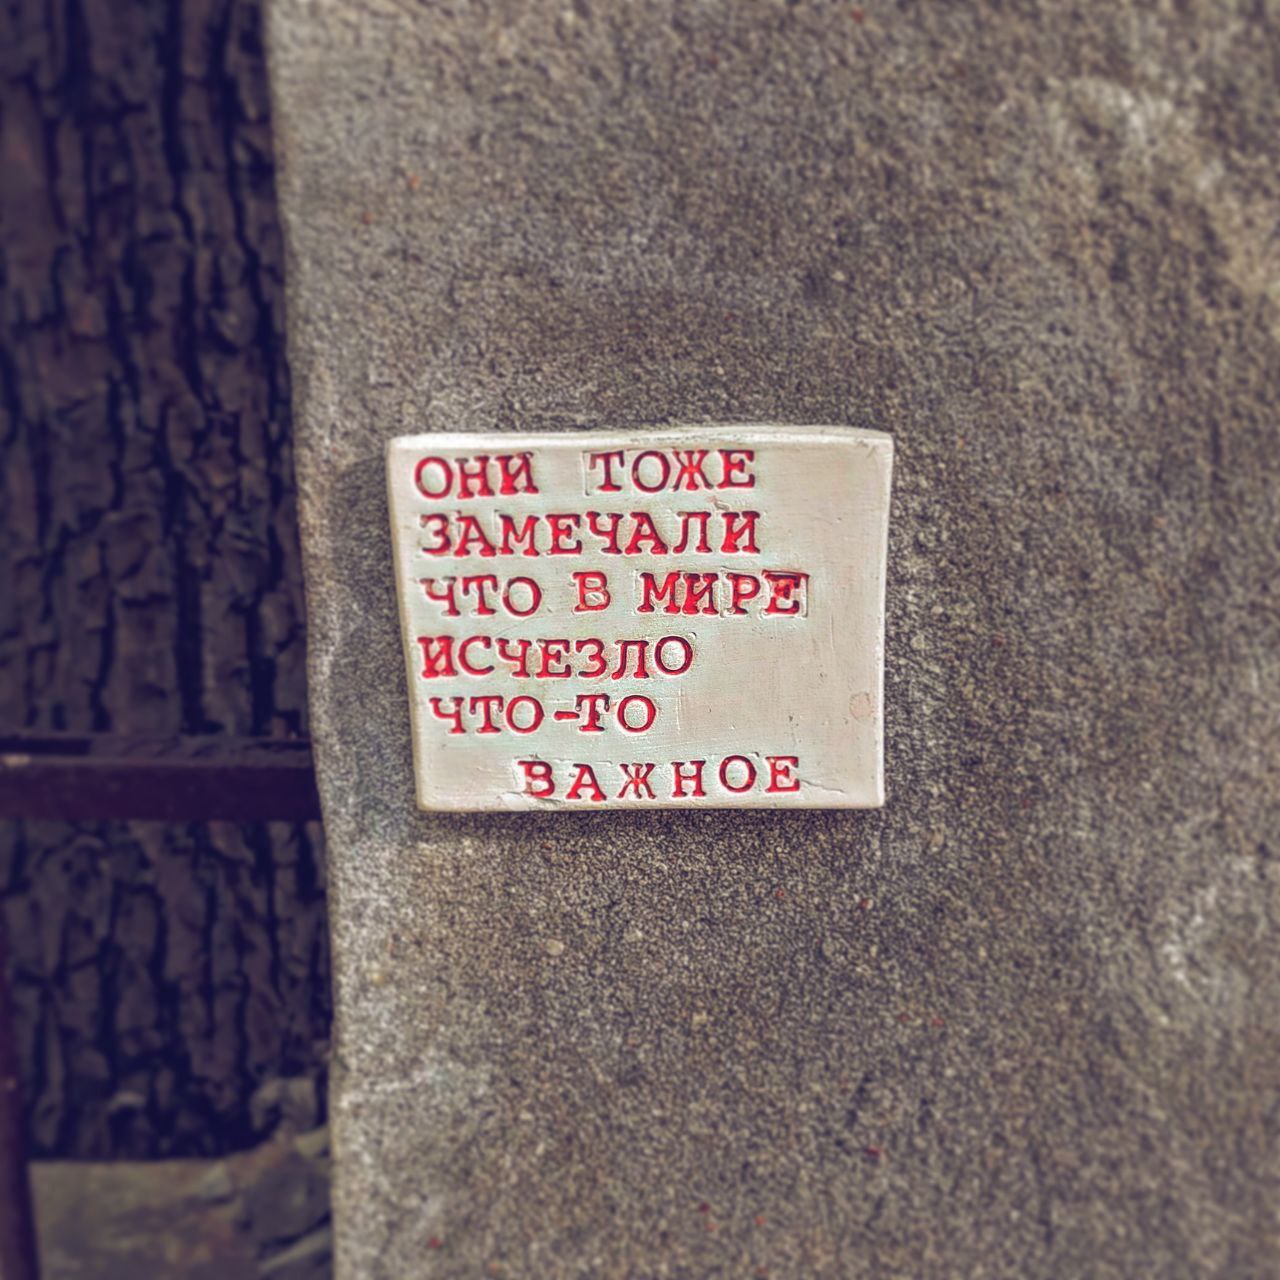 ОНИ ТОЖЕ
ЗАМЕЧАЛИ
ЧТО В МИРЕ
ИСЧЕЗЛО
ЧТО-ТО
ВАЖНОЕ